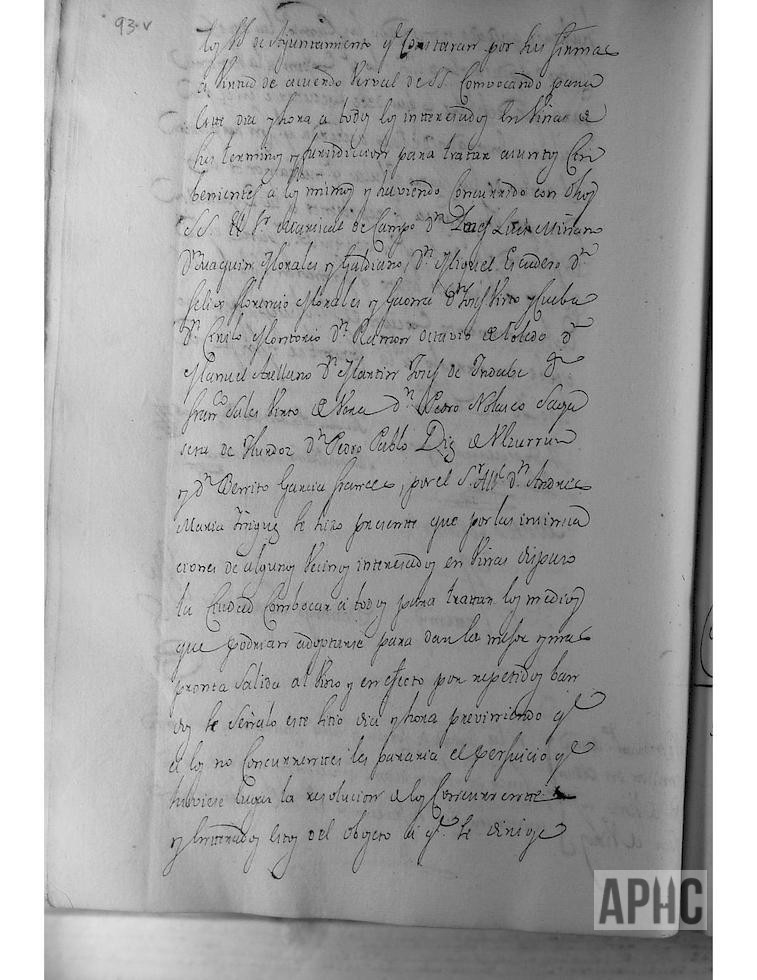 93. v
los SS de Ayuntamiento qe Constaran por sus firmas
a Virtud de acuerdo Verval de SS. Convocando para
este dia y hora a todos los interesados en Viñas de
sus terminos y Jurisdicion para tratar asuntos Con
benientes a los mismos y haviendo Concurrido con dhos
SS. El Sr Mariscal de Campo Dn
Dn Juaquin Morales y Dn Miguel Escudero Dn
Felix florencio Morales y Dn Josef Virto y Cueba
Dn Cirilo Montorio Dn Ramon Octavio de Toledo Dn
Manuel Arellano Dn Martin Josef de Dn
Franco Sales Virto de Vera Dn Pedro Nolasco
de Dn Pedro Pablo Diez de Ulzurrun
y Dn Benito Garcia frances, por el Sr Alle Dn Andres
Maria Iñiguez se hizo presente que por las insinua
ciones de algunos Vecinos interesados en Viñas dispuso
la Ciudad Combocar a todos para trattar los medios
que podrian adoptarse para dar la mejor y mas
pronta Salida al Vino y en efecto por repetidos ban
dos se Señalo este sitio dia y hora previniendo qe
a los no Concurrentes les pararia el perjuicio qe
hubiese lugar la resolucion de los Concurrentes
y Enterados estos del objeto a qe se dirige
APHC